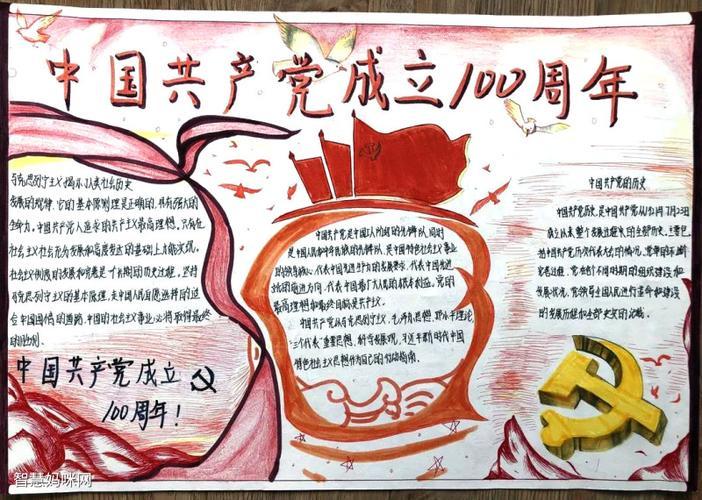 中国共产党成立100周年
马克思列宁主义揭示了人类社会历史
发展的规律,它的基本原理是正确的,具有强大的
生命力。中国共产党人追求的共产主义最高理想,只有在
社会主义社会充分发展和高度发达的基础上才能实现。
社会主义制度的发展和完善是一个长期的历史过程。坚持
马克思列宁主义的基本原理,走中国人民自愿选择的适
合中国国情的道路,中国的社会主义事业必将取得最终
的胜利。
中国共产党成立
100周年!
中国共产党是中国工人阶级的先锋队,同时
是中国人民和中华民族的先锋队,是中国特色社会主义事业
的领导核心,代表中国先进生产力的发展要求,代表中国先
进文化的前进方向,代表中国最广大人民的根本利益。党的
最高理想和最终目标是共产主义。
中国共产党以马克思列宁主义、毛泽东思想、邓小平理论
"三个代表"重要思想、科学发展观、习近平新时代中国
特色社会主义思想作为自己的行动指南。
中国共产党的历史
中国共产党历史,是中国共产党从1921年7月23日
成立以来整个发展过程的全部历史。主要包
括中国共产党历次代表大会的情况,党章的不断
完善过程,党在各个不同时期的组织建设和
发展状况,党领导全国人民进行革命和建设
的发展历程和全部史实的记载。
智慧妈咪网